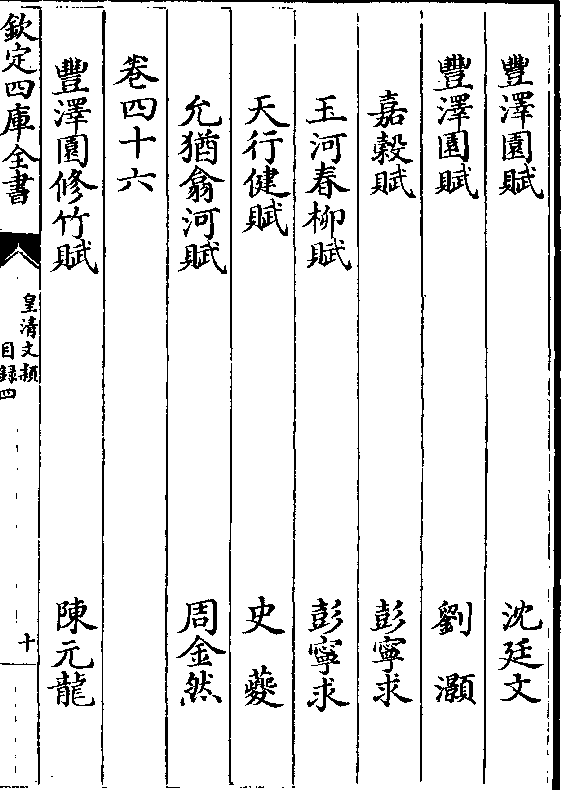 豐澤園賦 沈廷文
豐澤園賦 劉灝
嘉穀賦 彭寧求
玉河春柳賦 彭寧求
天行健賦 史夔
允猶翕河賦 周金然
卷四十六
豐澤園修竹賦 陳元龍
欽定四庫全書
皇清文穎
目録四
十